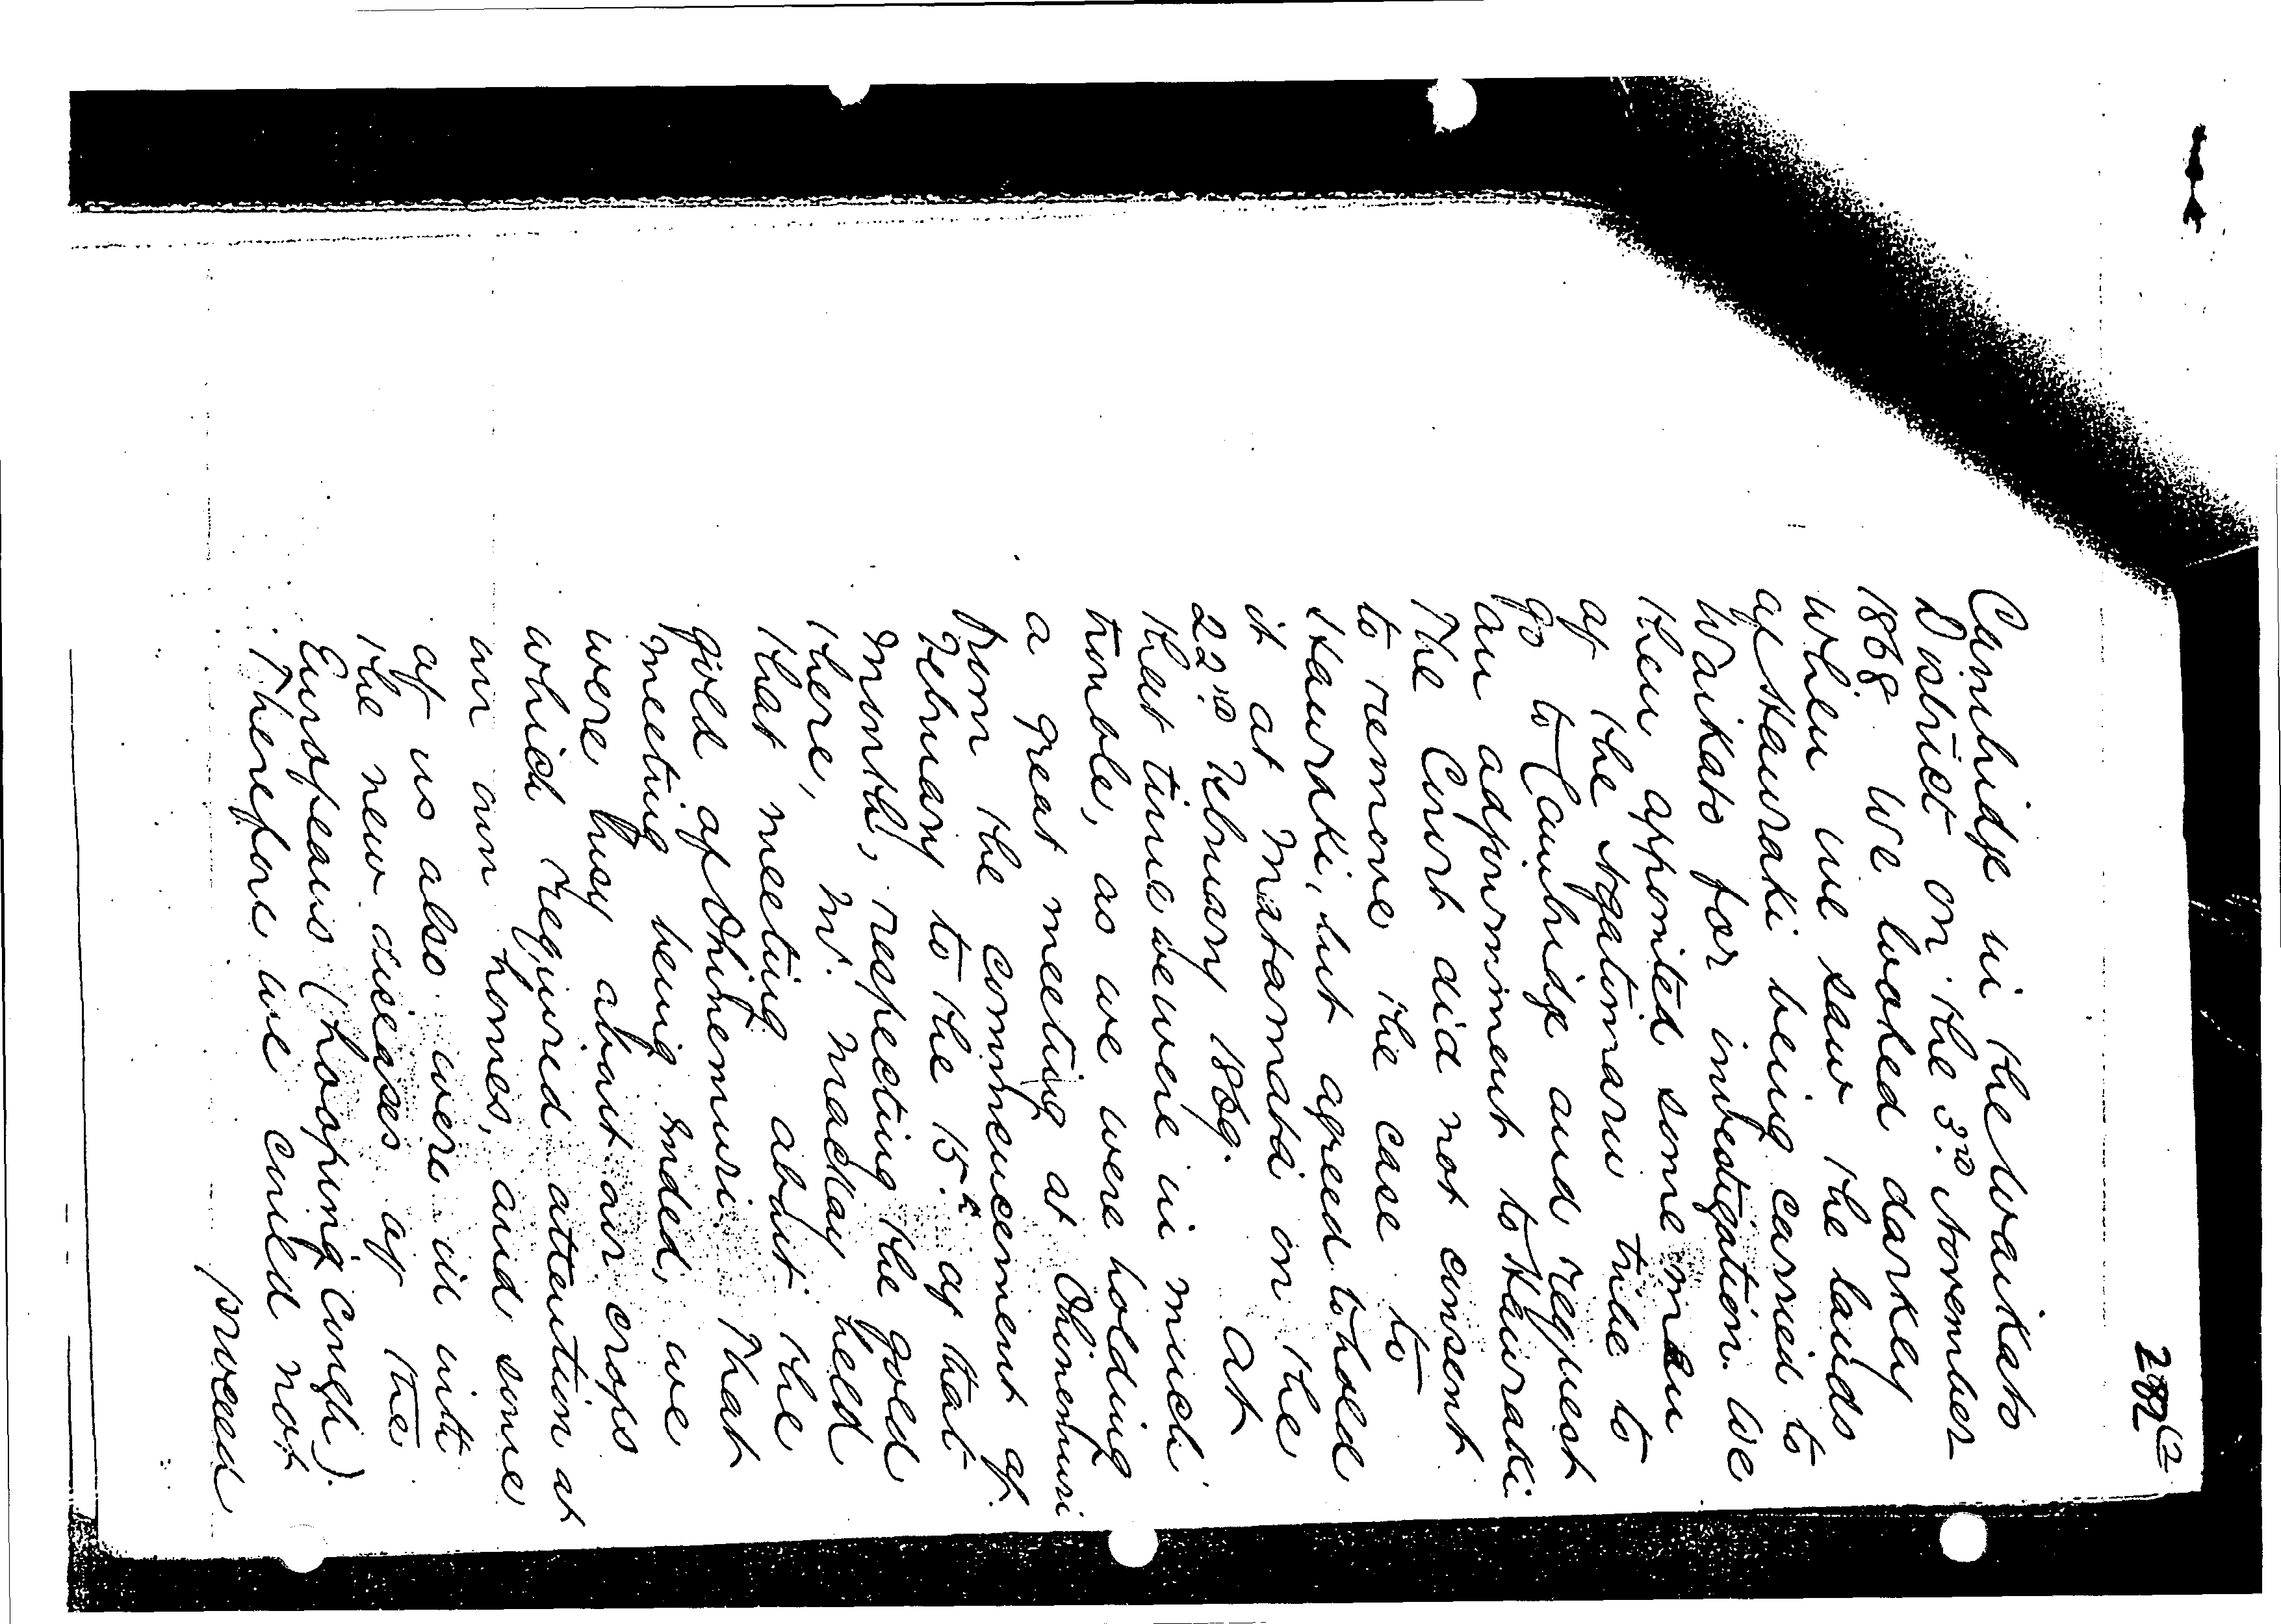 282 (2
Cambridge in the Waikato
District on the 3rd November
1868 We looked darkly
when we saw the lands
of Hauraki being carried to
Waikato for investigation. We
then appointed some men
of the Ngatimaru tribe to
go to Cambridge and request
an adjournment to Hauraki
The Court did not consent
to remove the case to
Hauraki, but agreed to hold
it at Matamata on the
22nd February 1869. At
that time we were in much
trouble, as we were holding
a great meeting at Ohinemuri
from the commencement of
February to the 15th of that
month, respecting the gold
there, Mr. Mackay held
that meeting about the
gold of Ohinemuri. That
meeting being ended, we
were busy about our crops
which required attention at
our own homes, and some
of us also were ill with
the new diseases of the
Europeans (hooping cough).
Therefore we could not
proceed